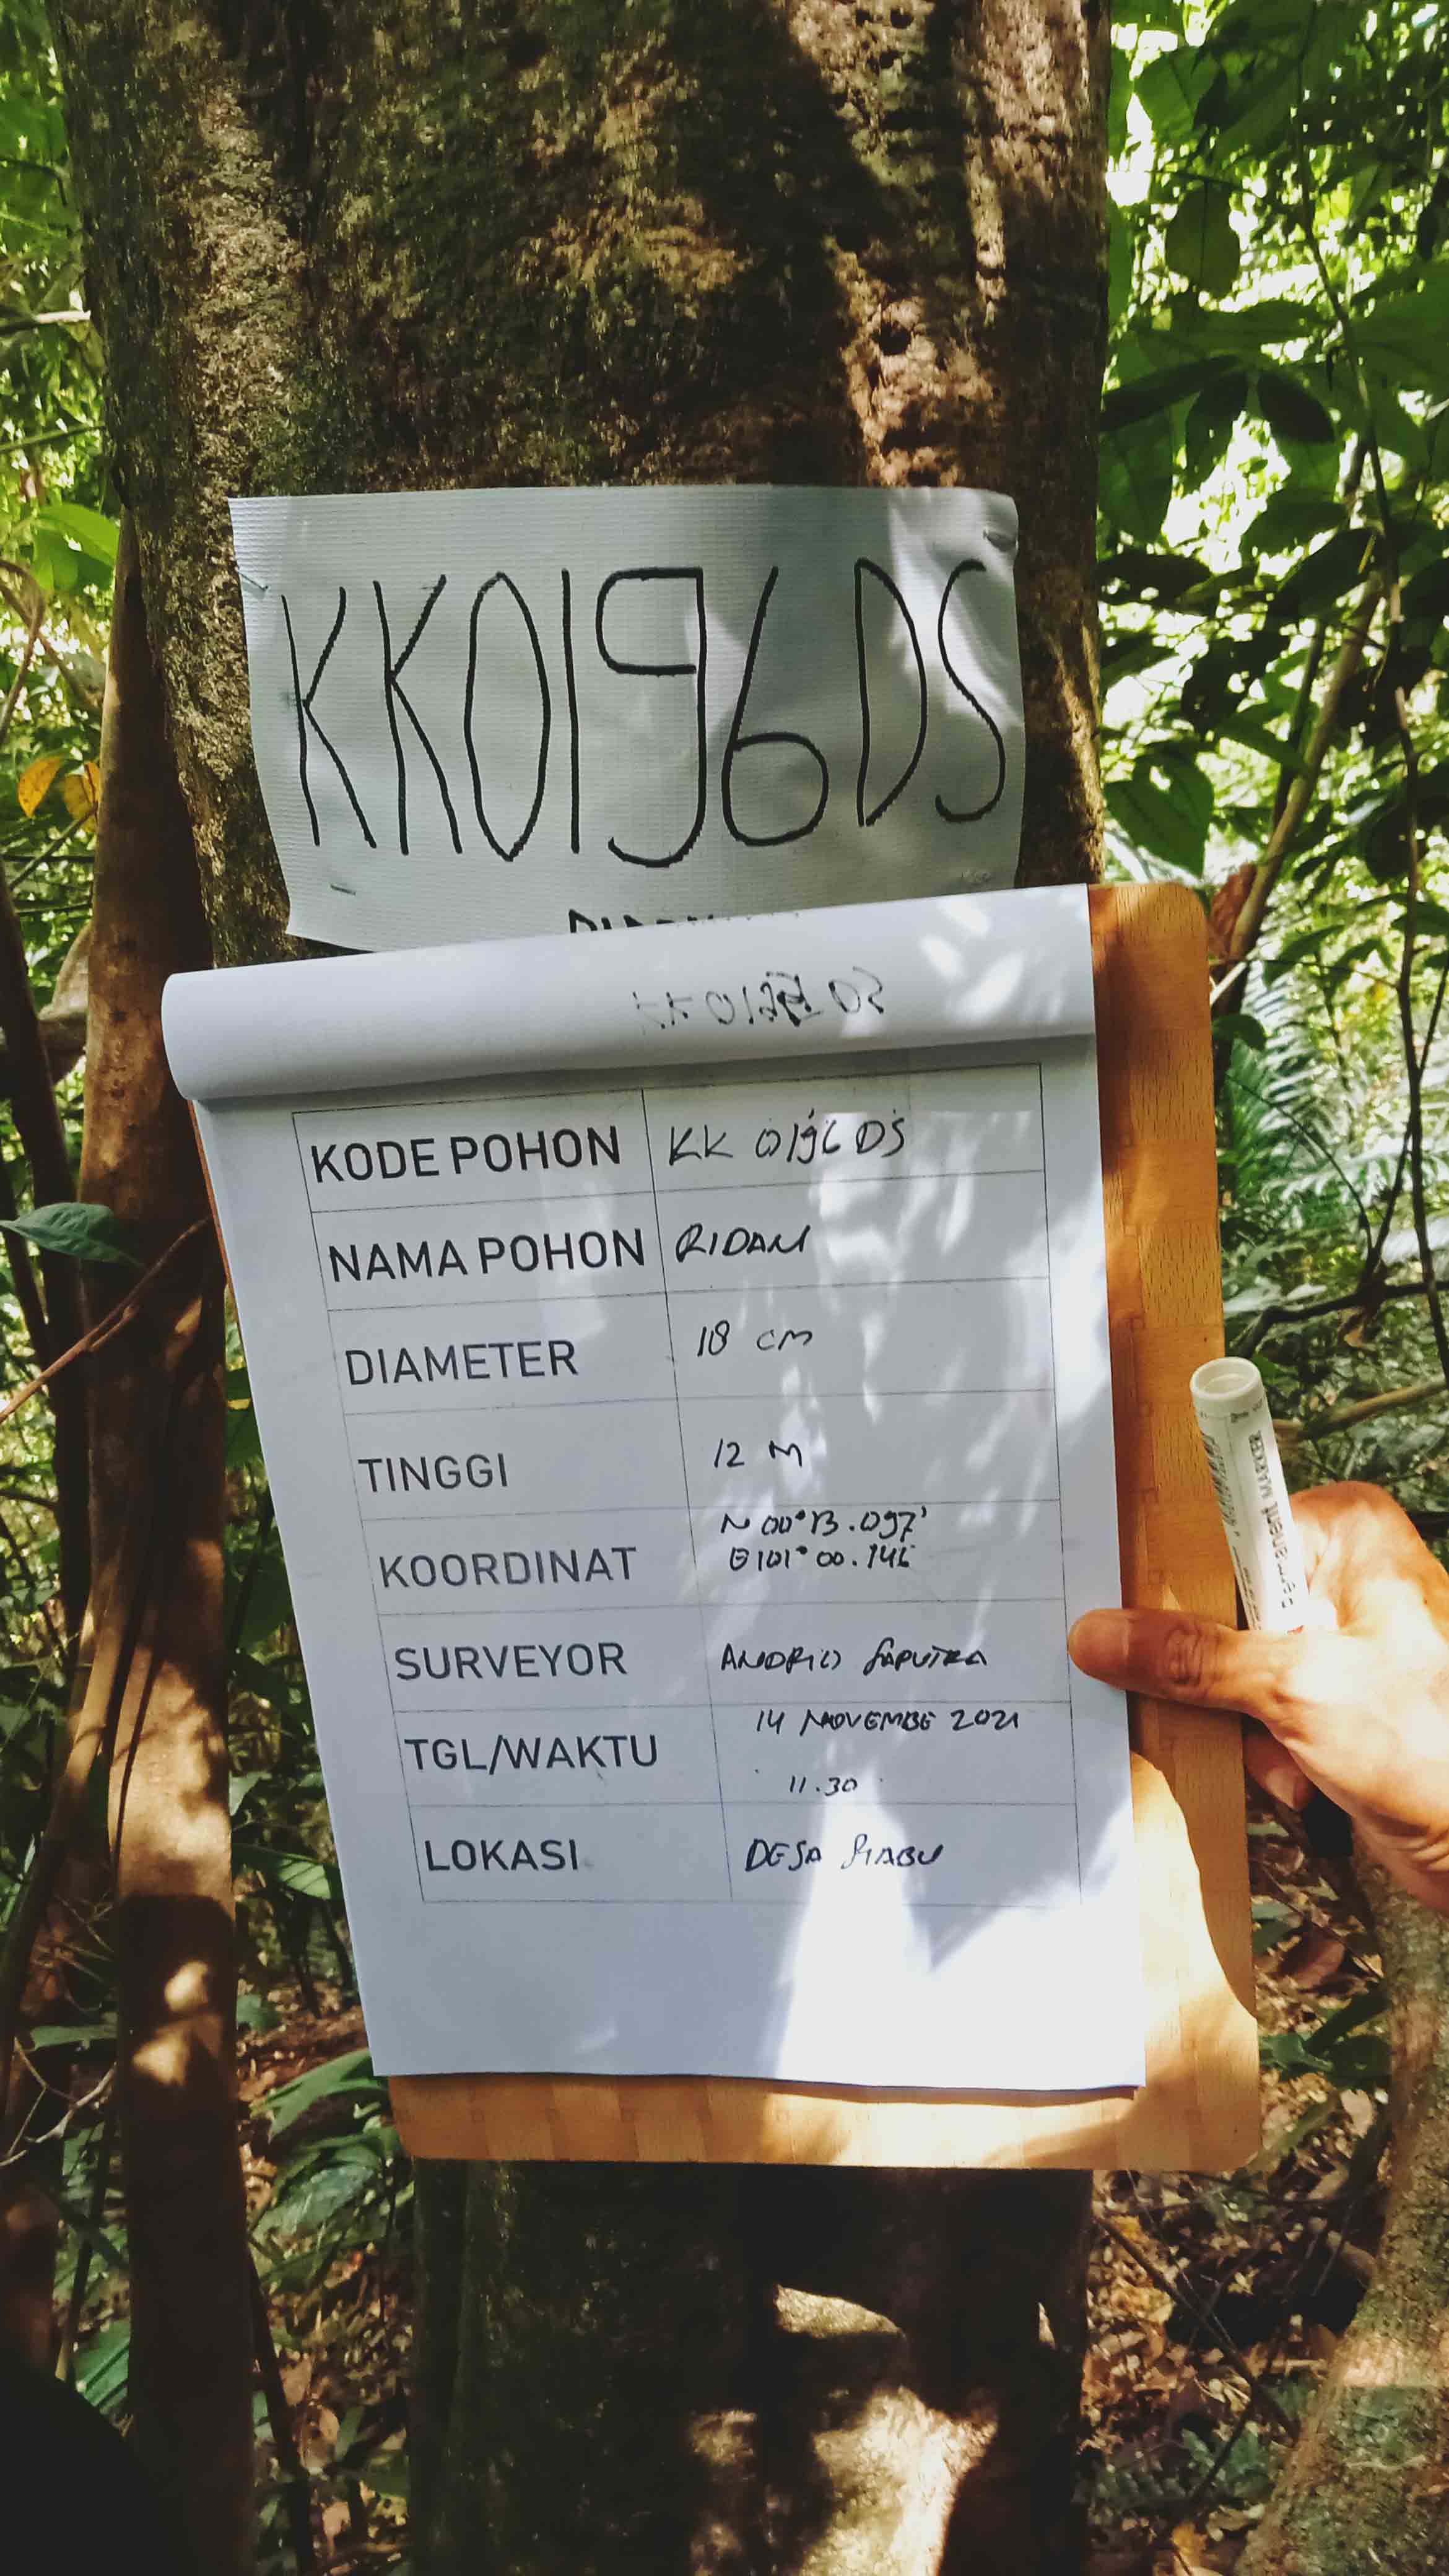 KK0196DS
KODE POHON KK 0196 DS
NAMA POHON RIDAN
DIAMETER 18 CM
TINGGI 12 M
KOORDINAT N 00° 13.097'
E 101° 00.146
SURVEYOR SAPUTRA
TGL/WAKTU 14 NOVEMBE 2021
11.30
LOKASI DESA SIABU
Permanent MARKER